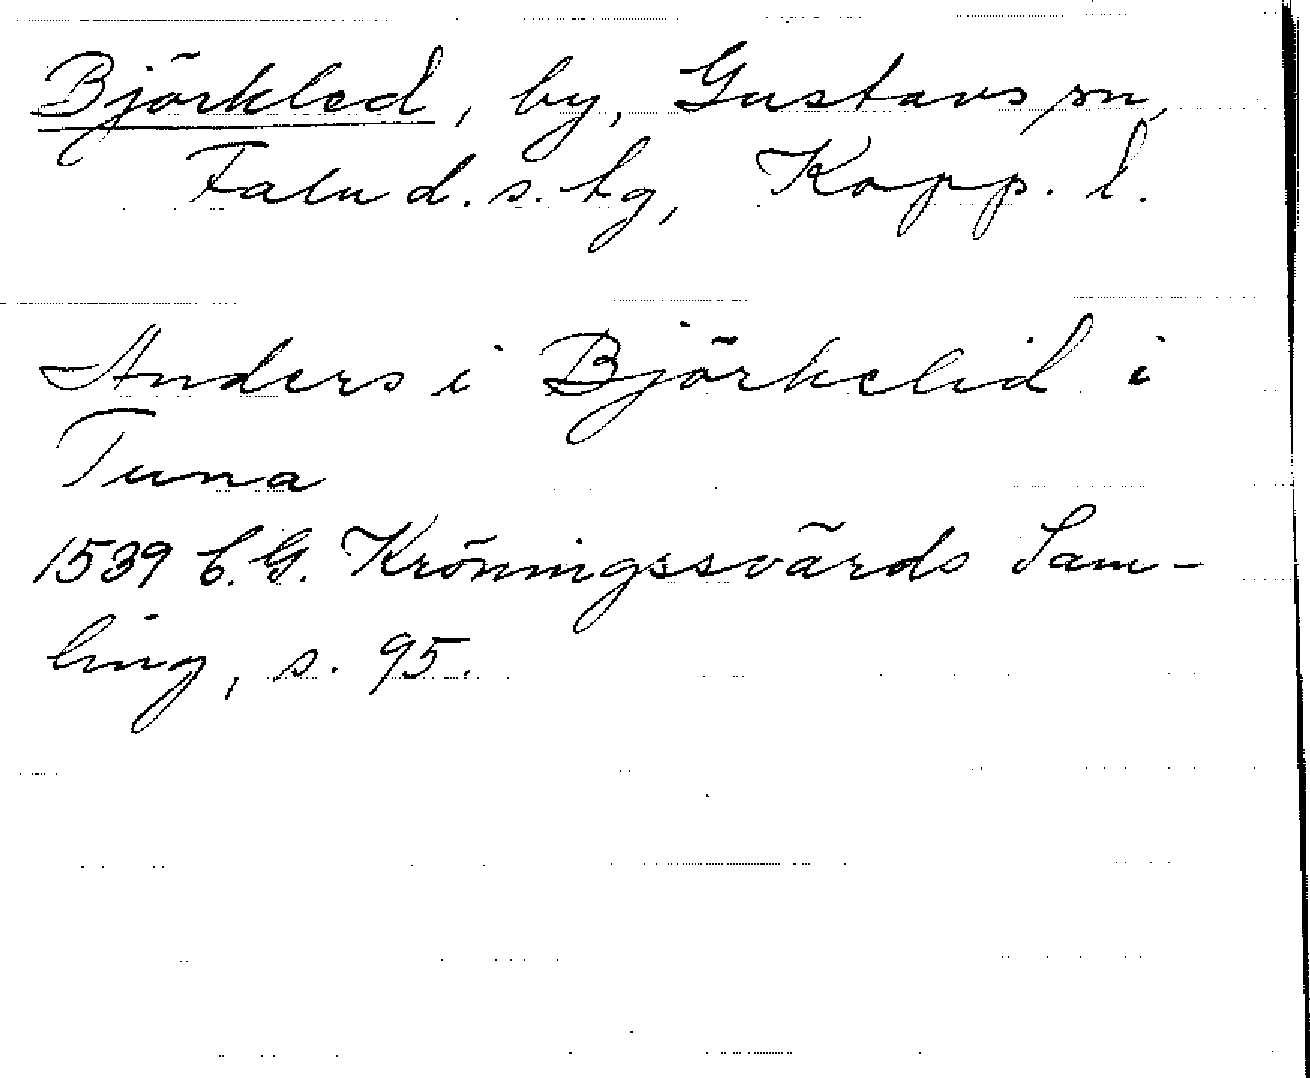 Björkled, by, Gustavs sn,
Falu d.s. tg, Kopp. l.
Anders i Björkelid i
Tuna
1539 C.G. Kröningssvärds Sam-
ling, s. 95.